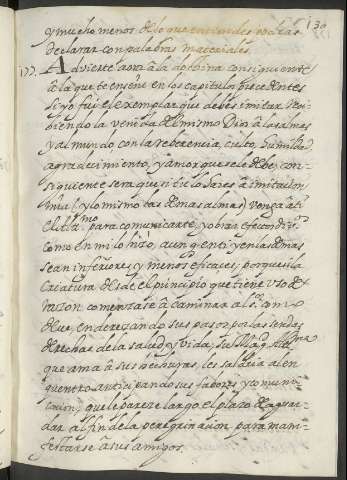 130
y mucho menos de lo que entiendes podras
declarar con palabras materiales.
177. Advierte aora a la doctrina consiguiente
a la que te enseñe en los capitulos precedentes
si yo fui el exemplar que debes imitar reci
biendo la venida del mismo Dios a las almas
y al mundo con la reberencia, culto, humildad
agradecimiento, y amor que se le debe, con
siguiente sera que si tu lo haces a imitacion
mia (y lo mismo las demas almas) venga a ti
el altmo. para comunicarte, y obrar efectos divos
como en mi lo hizo, aunq en ti, y en las demas
sean inferiores, y menos eficaces, porque si la
criatura desde el principio que tiene uso de
razon comenzase a caminar al Sor. como
debe, enderezando sus pasos por las sendas
derechas de la salud, y vida, su Magd. Altma.
que ama a sus hechuras, les saldria al en
quentro anticipando sus fabores, y comuni
cacion, que le pareze largo el plazo de aguar
dar al fin de la peregrinacion para mani
festarse a sus amigos.